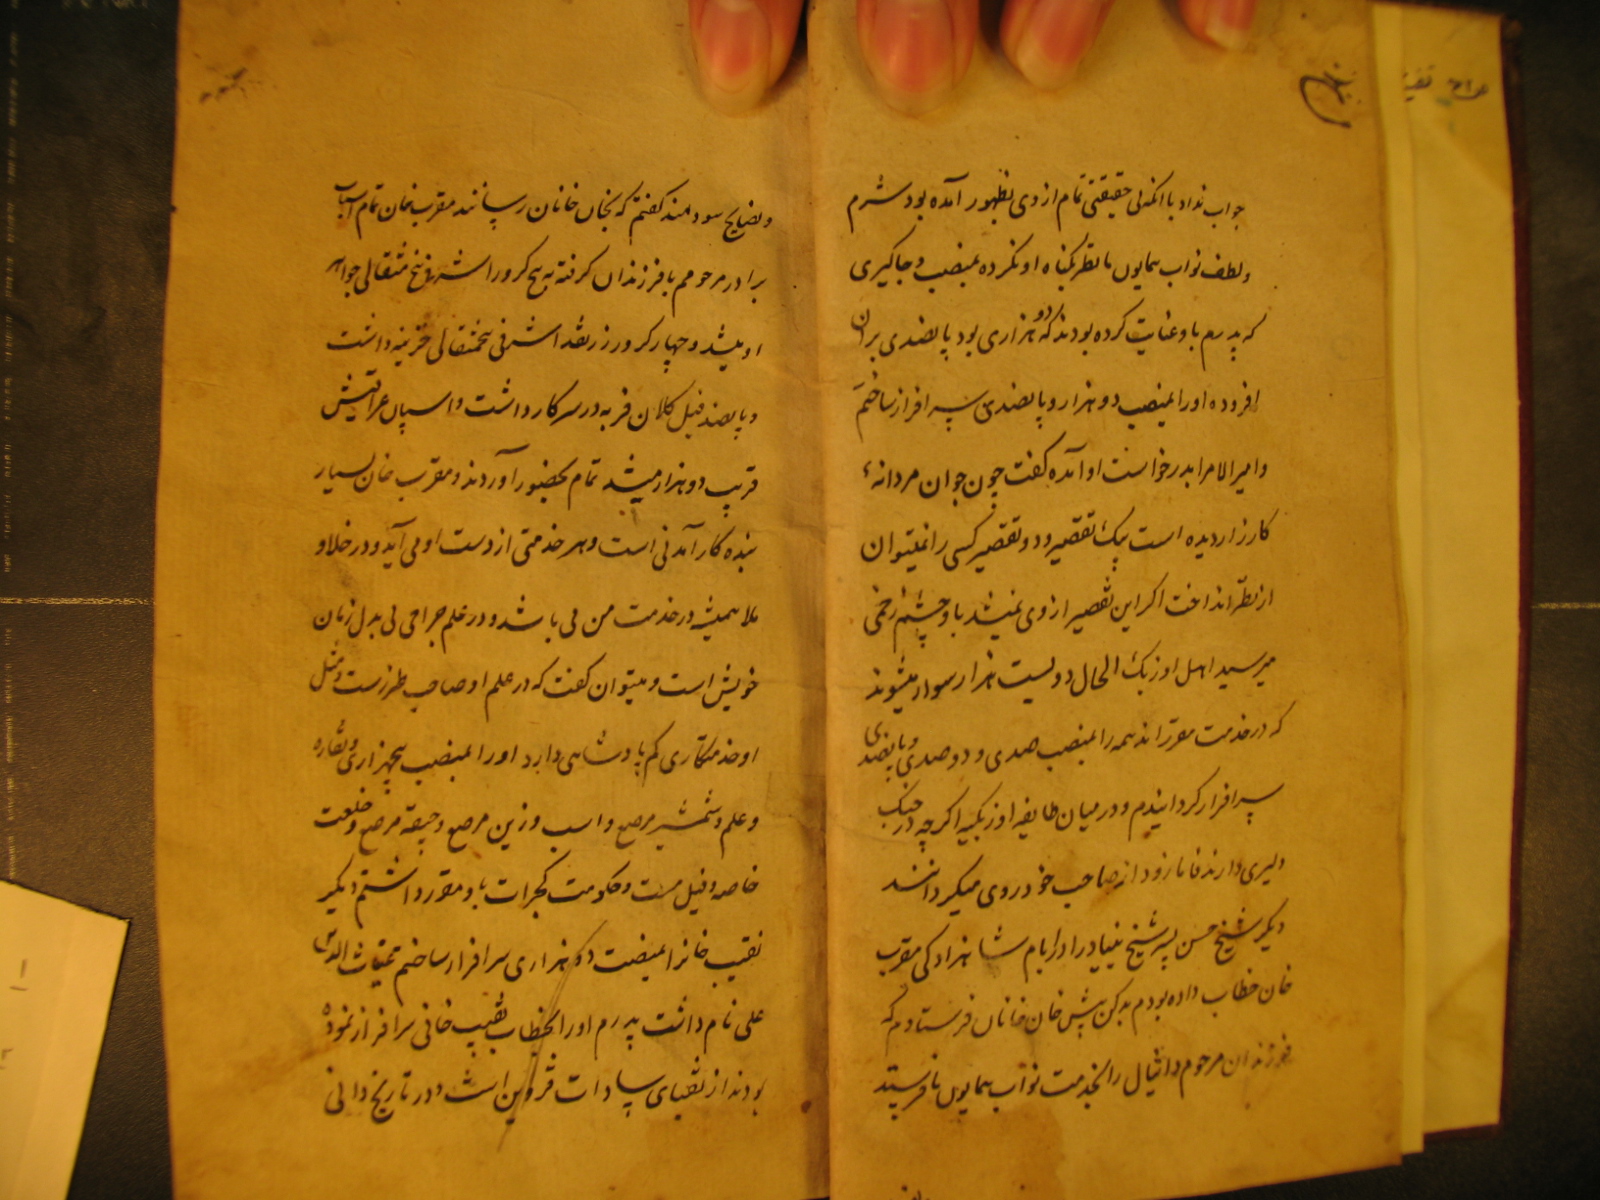 جواب نداد با آنکه بی حقیقتی تمام از وی بظهور آمده بود شرم
ولطف نواب همایون ما نظر بگناه او نکرده بمنصب و جاگیری
که پدرم باو عنایت کرده بودند که دو هزاری بود پانصدی بران
افزوده اورا بمنصب دو هزار و پانصدی سرافراز ساختم
وامیر الامرا بدرخواست او آمده گفت چون جوان مردانهٔ
کارزار دیده است بیک تقصیر و دو تقصیر کسی را نمیتوان
از نظر انداخت اگر این تقصیر از وی نمیشد باو چشم زخمی
میرسید اهل اوزبک الحال دویست هزار سوار میشوند
که در خدمت مقرر اند همه را بمنصب صدی و دو صدی و پانصدی
سرافراز گردانیدم و در میان طایفه اوزبکیه اگرچه در جنگ
دلیری دارند فاما زود از صاحب خود روی میگردانند
دیگر شیخ حسن پسر شیخ بینا در ایام شاهزادگی مقرب
خان خطاب داده بودم بدکن پیش خان خانان فرستادم که
فرزندان مرحوم دانیال را بخدمت نواب همایون ما فرستد
ونصایح سودمند گفتم که بخان خانان رساند مقرب خان تمام اسباب
برادر مرحومم با فرزندان گرفته پنج کرور اشرفی پنج مثقالی جواهر
او میشد و چهار کرور زر نقد اشرفی پنجمثقالی خزینه داشت
وپانصد فیل کلان فربه در سرکار داشت واسپان عراقیش
قریب دو هزار میشد تمام بحضور آوردند ومقرب خان بسیار
بنده کار آمدنی است وهر خدمتی از دست او می آید و در خلا و
ملا همیشه در خدمت من می باشد ودر علم جراحی بی بدل زمان
خویش است و میتوان گفت که در علم او صاحب طرزست ومثل
او خدمتکاری کم پادشاهی دارد اورا بمنصب پنجهزاری ونقاره
وعلم وشمشیر مرصع واسب وزین مرصع وجیقه مرصع وخلعت
خاصه وفیل مست وحکومت گجرات باو مقرر داشتم دیگر
نقیب خانرا بمنصب دو هزاری سرافراز ساختم غیاث الدین
علی نام داشت پدرم اورا بخطاب نقیب خانی سرافراز نموده
بودند از نقبای سادات قزوین است ودر تاریخ دانی